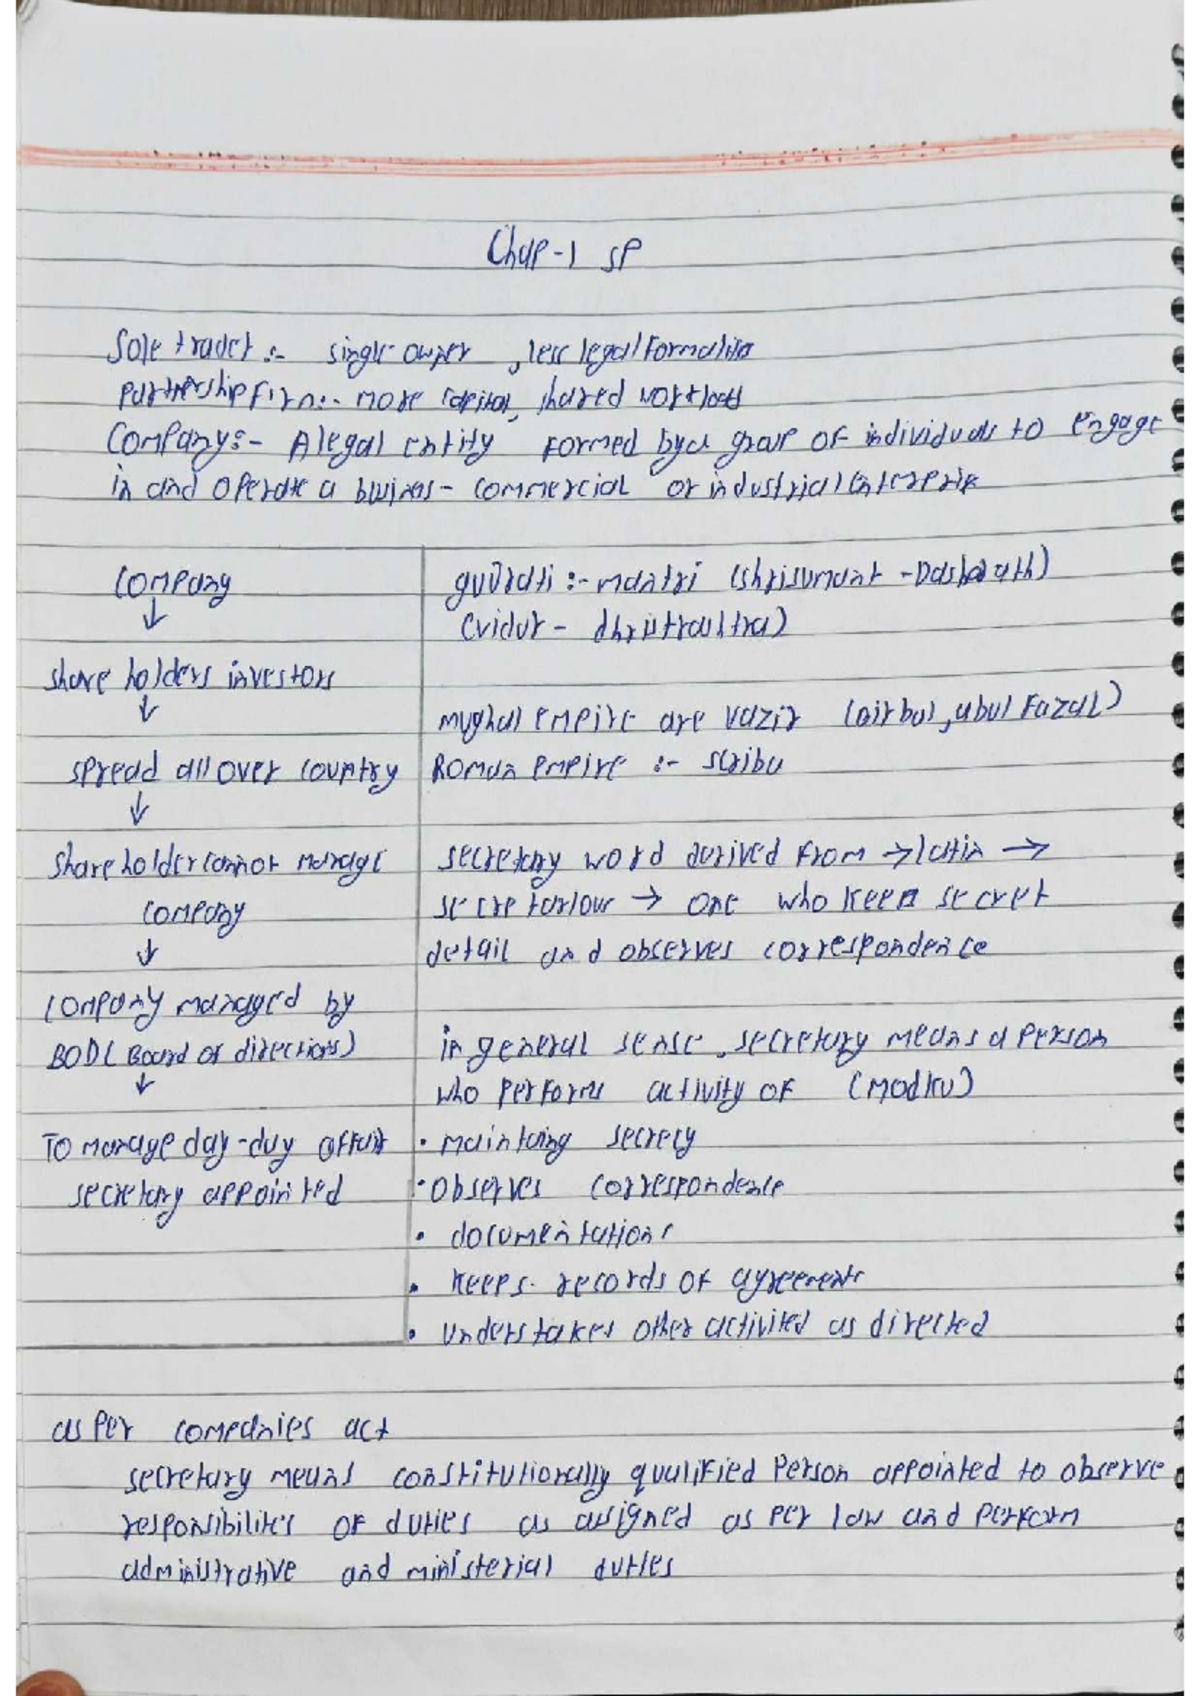 Chap-1 SP
Sole trader :- single owner, less legal formalities
Partnership firm :- more capital, shared workload
Company :- A legal entity formed by a group of individuals to engage
in and operate a business - commercial or industrial enterprise
Company
↓
share holders investors
↓
spread all over country
↓
share holder cannot manage
company
↓
company managed by
BOD (Board of directions)
↓
To manage day-day affair
secretary appointed
gujrati :- mantri (shrisumant - Dasharath)
(vidur - dhrutrashtra)
mughal empire are vazir (birbal, abul Fazal)
Roman empire :- scriba
secretary word derived from → latin →
secretarious → one who keep secret
detail and observes correspondence
in general sense, secretary means a person
who performs activity of (modku)
• maintaing secrecy
• observes correspondence
• documentations
• keeps records of agreements
• understakes other activited as directed
as per companies act
secretary means constitutionally qualified person appointed to observe
responsibilites of duties as assigned as per law and perform
administrative and ministerial duties